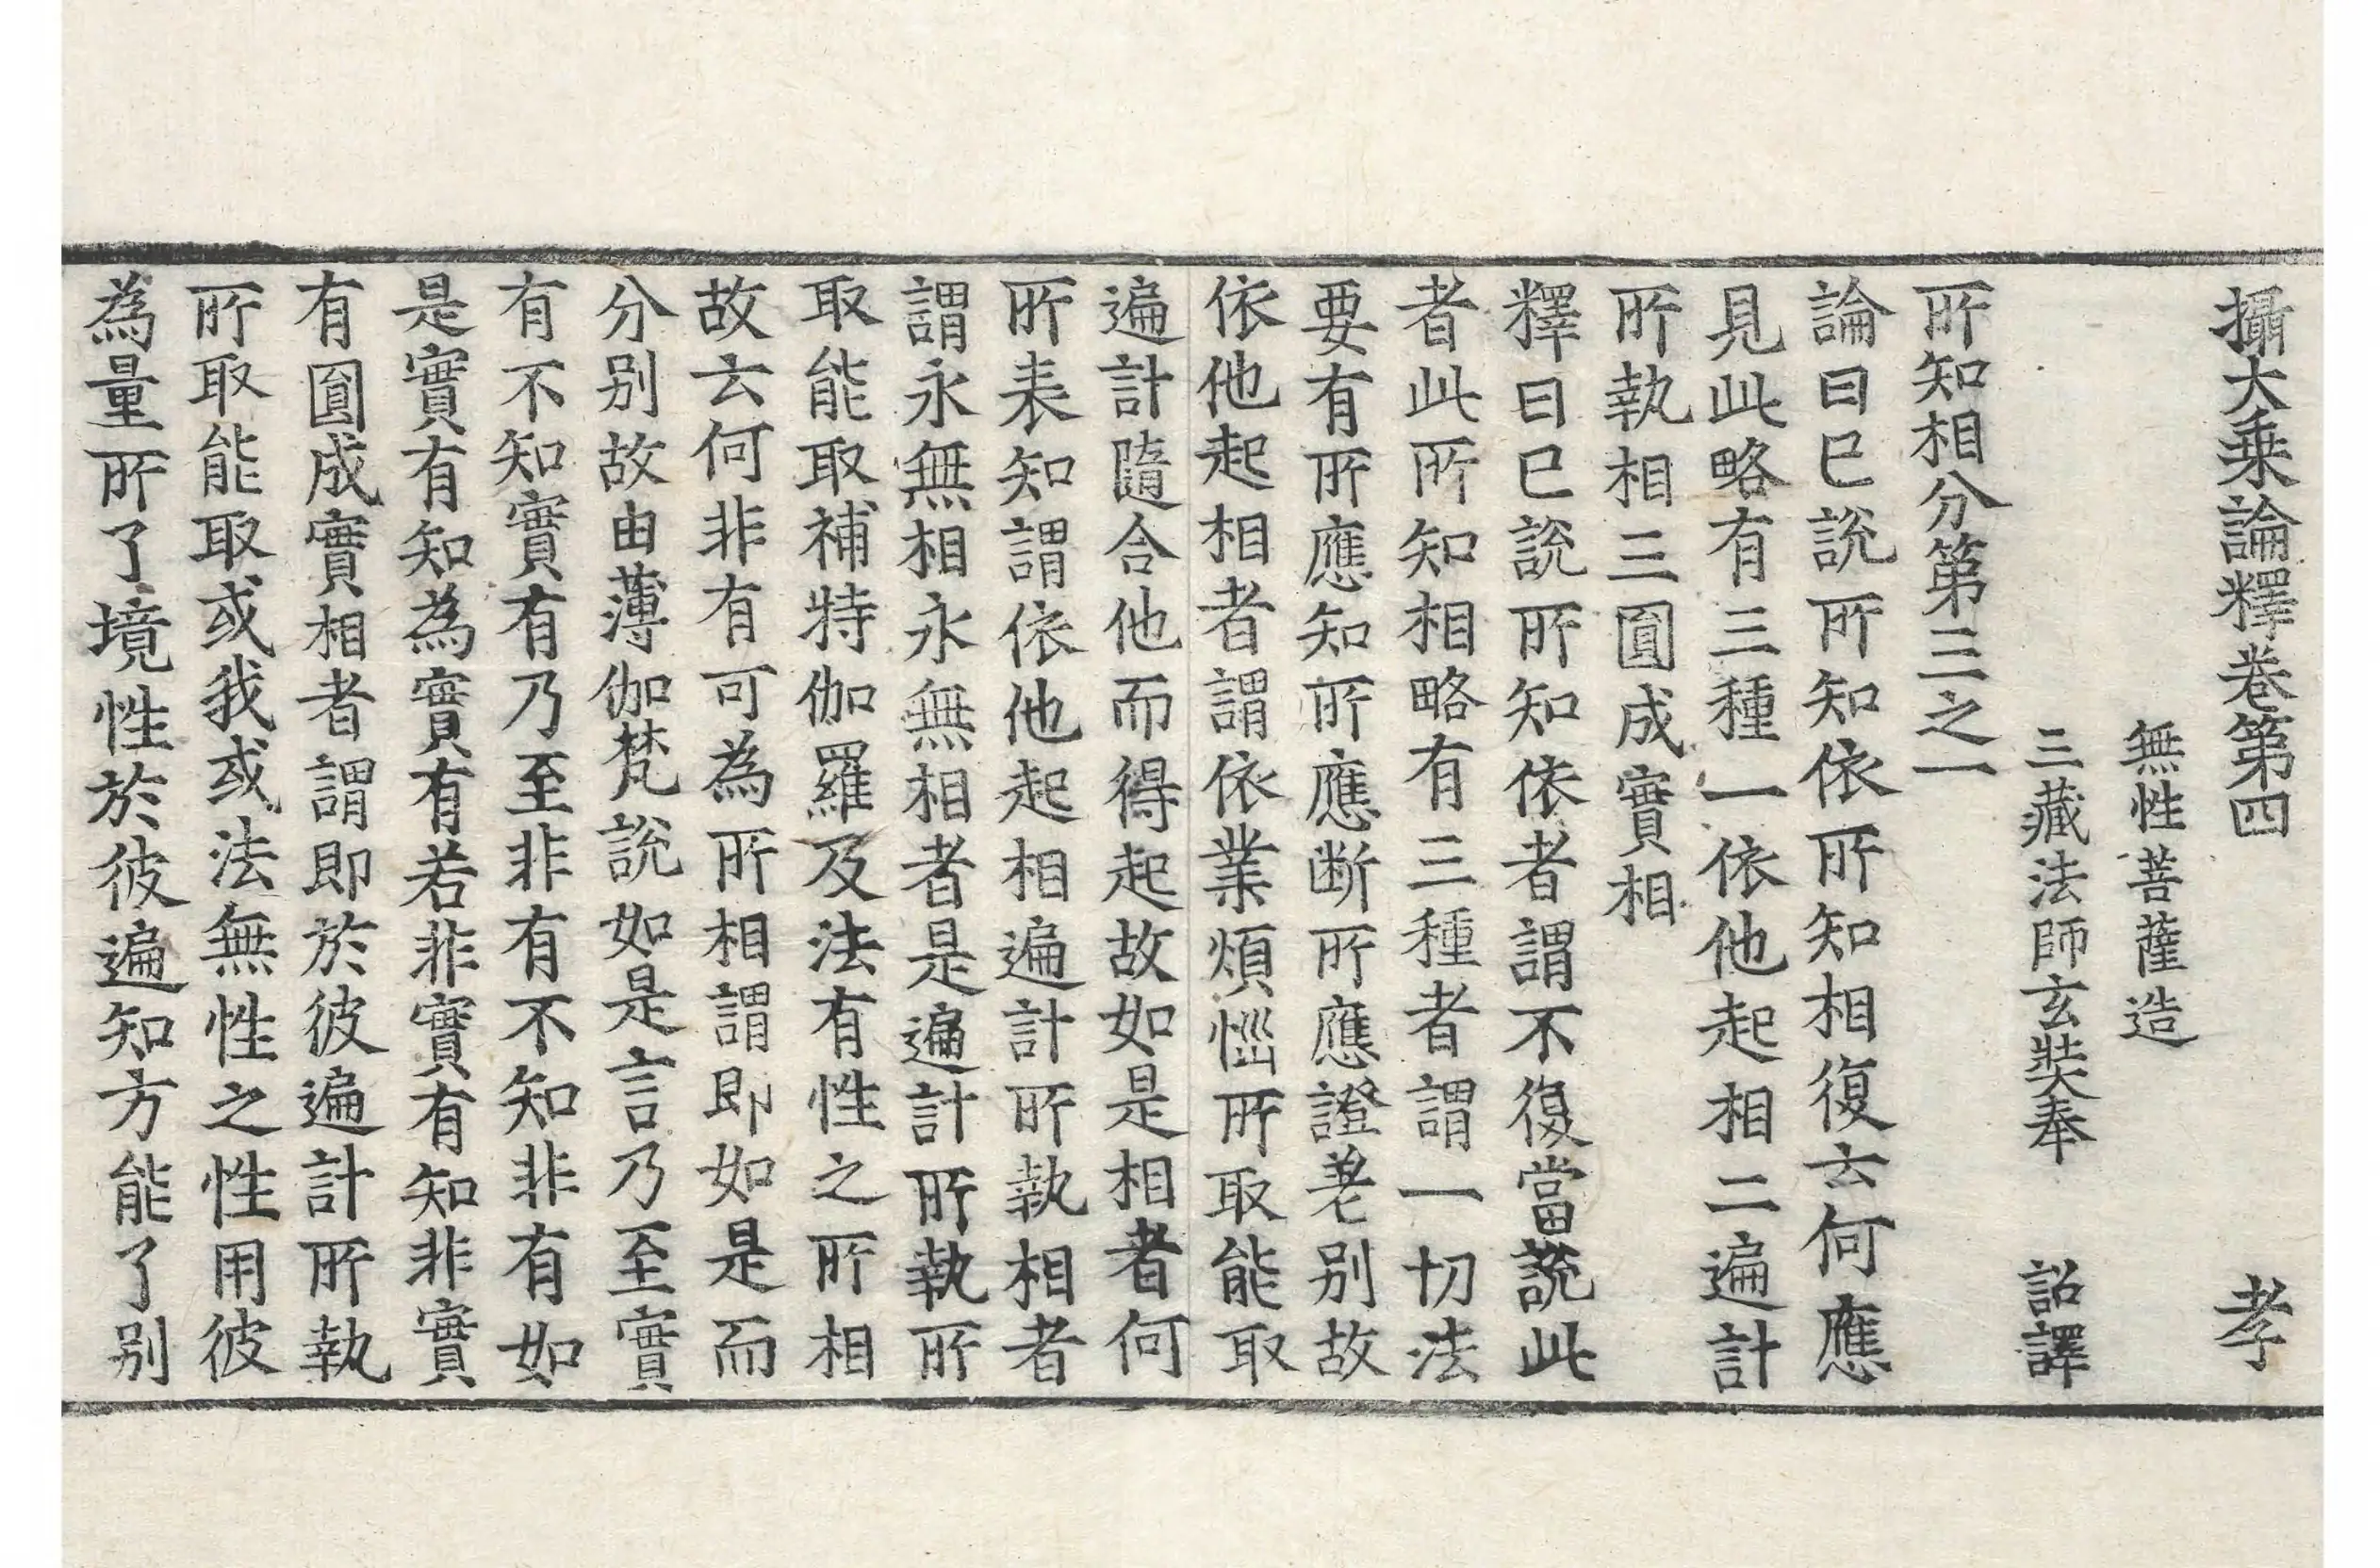 攝大乗論釋卷第四 孝
無性菩薩造
三藏法師玄奘奉 詔譯
所知相分第三之一
論曰已說所知依所知相復云何應
見此略有三種一依他起相二遍計
所執相三圓成實相
釋曰已說所知依者謂不復當說此
者此所知相略有三種者謂一切法
要有所應知所應断所應證差別故
依他起相者謂依業煩惱所取能取
遍計隨合他而得起故如是相者何
所表知謂依他起相遍計所執相者
謂永無相永無相者是遍計所執所
取能取補特伽羅及法有性之所相
故云何非有可為所相謂即如是而
分别故由薄伽梵說如是言乃至實
有不知實有乃至非有不知非有如
是實有知為實有若非實有知非實
有圓成實相者謂即於彼遍計所執
所取能取或我或法無性之性用彼
為量所了境性於彼遍知方能了别